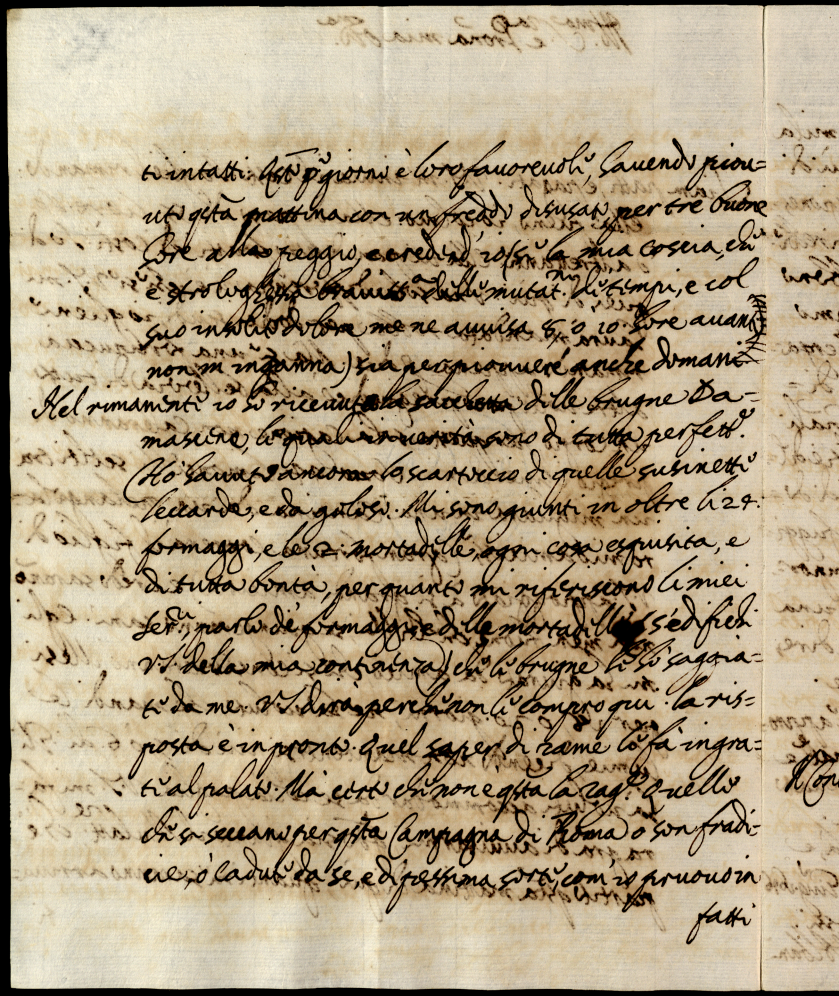 ti intatti. Qste pñ giorni è loro favorevole, havendo piou=
uto qsta mattina con un freddo disusato per tre buone
hore alla peggio, e credend' io (se la mia coscia, ch'è
è strologhessa bravissa delle mutatni di tempi, e col
suo insolito dolore me ne avvisa 8, o 10 hore avanti
non m' inganna) sia per piovere anche domani.
Nel rimanente io hò ricevuto la sacchetta delle brugne Da=
mascene, le quali in verità sono di tutta perfettne.
Hò havuto ancora lo scartoccio di quelle susinette
leccarde, e da golosi. Mi sono giunti in oltre li 24.
formaggi, e le 2. mortadelle, ogni cosa esquisita, e
di tutta bontà, per quanto mi riferiscono li miei
serri; parlo de' formaggi, e delle mortadelle (s'edifichi
VS. della mia continenza) che le brugne le hò saggia=
te da me. VS. dirà, perche non le compro qui. La ris=
posta è in pronto. Quel saper di rame le fà ingra=
te al palato. Mà certo che non è qsta la ragne. Quelle
che si seccano per qsta Campagna di Roma o son fradi=
cie, ò cadute da se, e di pessima sorte, com' io pruovo in
fatti